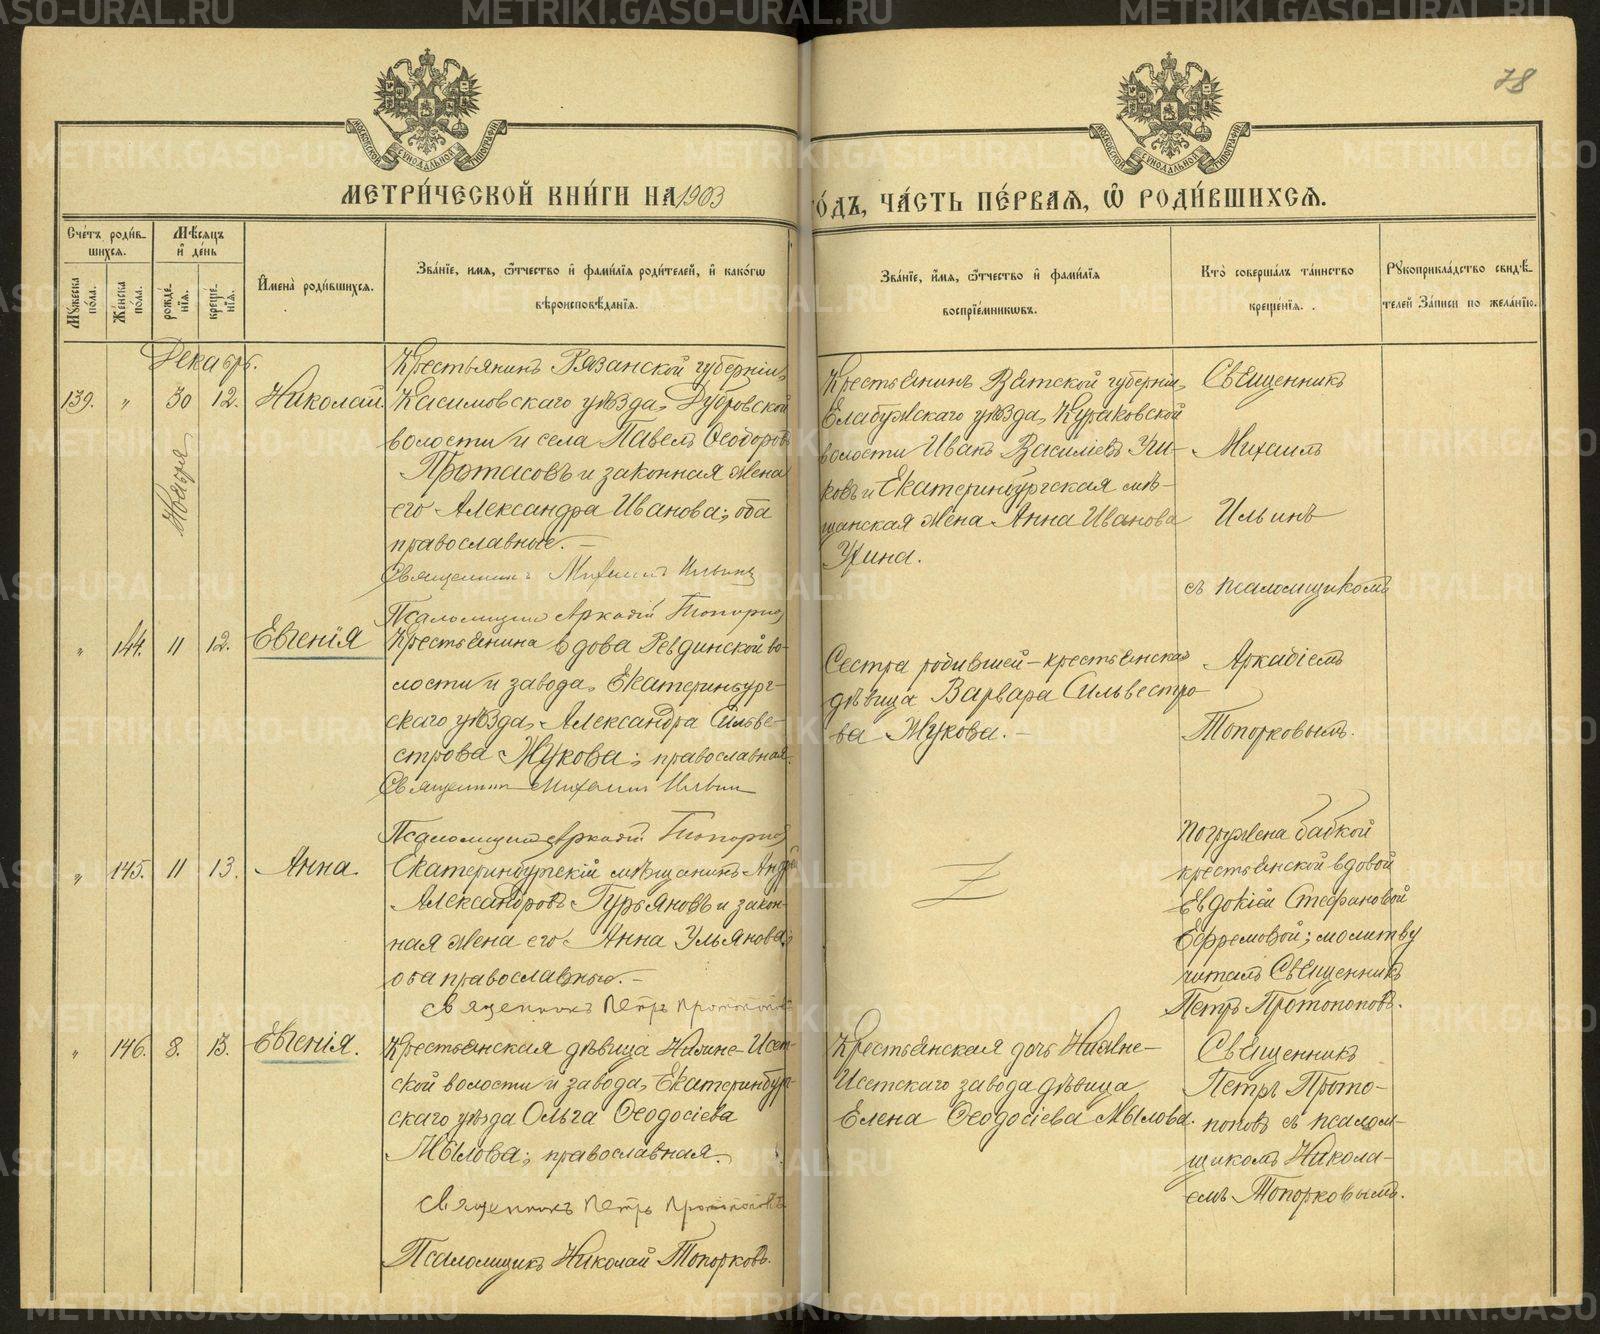 78
МОСКОВСКОЙ СѴНОДАЛЬНОЙ ТИПОГРАФІИ
МОСКОВСКОЙ СѴНОДАЛЬНОЙ ТИПОГРАФІИ
МЕТРИ́ЧЕСКОЙ КНИ́ГИ НА 1903
ГО́ДЪ, ЧА́СТЬ ПЕ́РВАѦ, Ѽ РОДИ́ВШИХСѦ.
Сче́тъ роди́в-
шихсѧ.
Мѣ́сѧцъ
и҆ де́нь
Мꙋ́жеска по́ла.
Же́нска по́ла.
рожде́-
нїѧ.
креще́-
нїѧ.
И҆мена̀ роди́вшихсѧ.
Зва́нїе, и҆мѧ, ѻ҆́тчество и҆ фами́лїѧ роди́телей, и҆ како́гѡ
вѣроисповѣ́данїѧ.
Зва́нїе, и҆́мѧ, ѻ҆́тчество и҆ фами́лїѧ
воспрїе́мникѡвъ.
Кто̀ соверша́лъ та́инство
креще́нїѧ.
Рꙋкоприкла́дство свидѣ́-
телей за́писи по жела́нїю.
Декабрь.
139. " 30 12. Николай.
Ноября
Крестьянинъ Рязанской губерніи,
Касимовскаго уѣзда, Дубровской
волости и села Павелъ Ѳеодоровъ
Протасовъ и законная жена
его Александра Иванова; оба
православные.—
Священникъ Михаилъ Ильинъ
Псаломщикъ Аркадій Топорковъ
Крестьянинъ Вятской губерніи,
Елабужскаго уѣзда, Кураковской
волости Иванъ Василіевъ Чи-
ковъ и Екатеринбургская мѣ-
щанская жена Анна Иванова
Священникъ
Михаилъ
Ильинъ
съ псаломщикомъ
Аркадіемъ
Топорковымъ.
" 144. 11 12. Евгенія
Крестьянина вдова Ревдинской во-
лости и завода, Екатеринбург-
скаго уѣзда, Александра Сильве-
строва Жукова; православная.
Священникъ Михаилъ Ильинъ
Псаломщикъ Аркадій Топорковъ
Сестра родившей—крестьянская
дѣвица Варвара Сильвестро-
ва Жукова.—
" 145. 11 13. Анна.
Екатеринбургскій мѣщанинъ Андрей
Александровъ Гурьяновъ и закон-
ная жена его Анна Ульянова;
оба православные.—
Священникъ Петръ Протопоповъ
Погружена бабкой
крестьянской вдовой
Евдокіей Стефановой
Ефремовой; молитву
читалъ Священникъ
Петръ Протопоповъ.
" 146. 8. 13. Евгенія.
Крестьянская дѣвица Нижне-Исет-
ской волости и завода, Екатеринбург-
скаго уѣзда Ольга Ѳеодосіева
Мылова; православная.
Священникъ Петръ Протопоповъ
Псаломщикъ Николай Топорковъ.
Крестьянская дочь Нижне-
Исетскаго завода дѣвица
Елена Ѳеодосіева Мылова.
Священникъ
Петръ Прото-
поповъ съ псалом-
щикомъ Никола-
емъ Топорковымъ.
METRIKI.GASO-URAL.RU